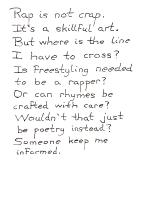 Rap is not crap.
It's a skillful art.
But where is the line
I have to cross?
Is freestyling needed
to be a rapper?
Or can rhymes be
crafted with care?
Wouldn't that just
be poetry instead?
Someone keep me
informed.